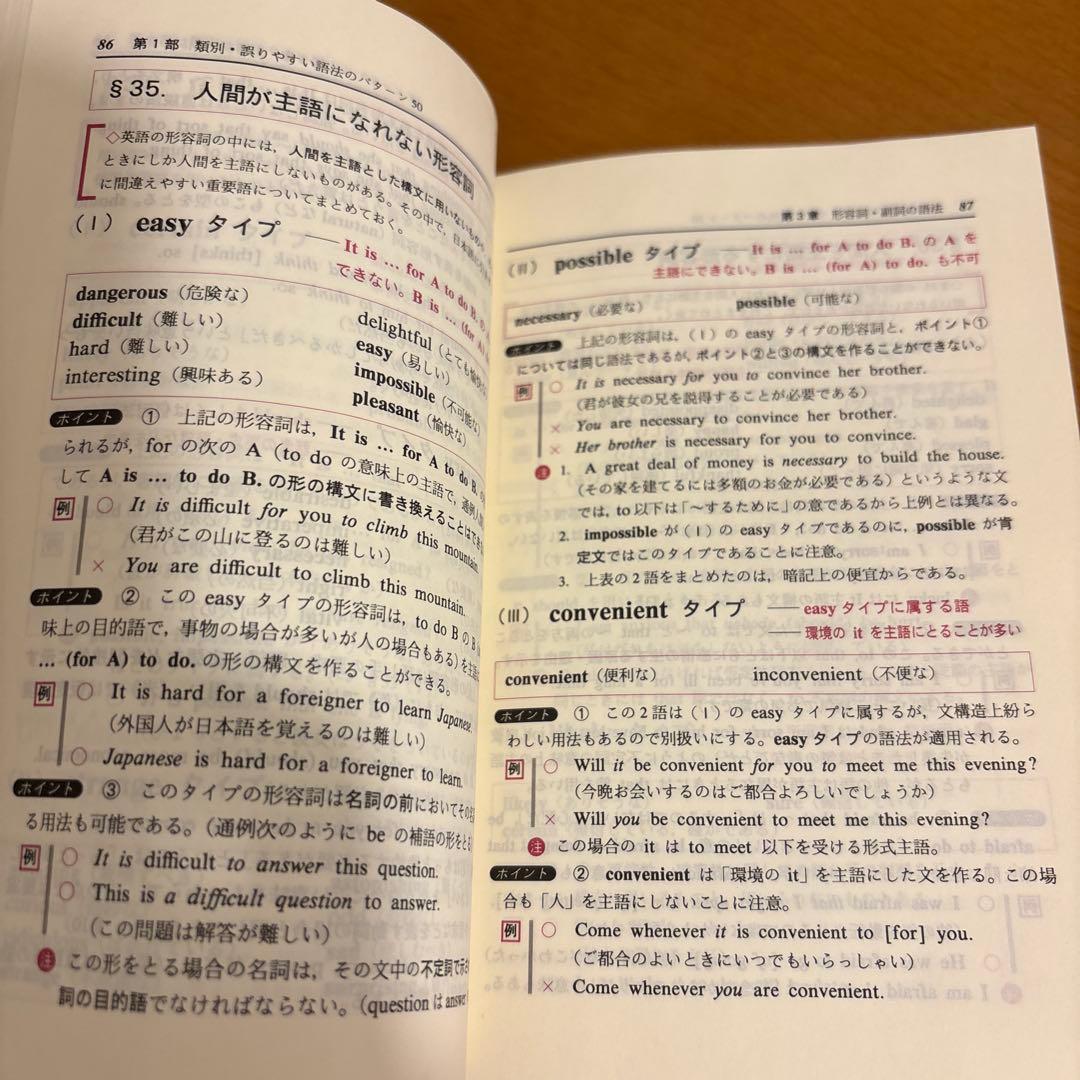 86 第1部 類別・誤りやすい語法のパターン50
§35. 人間が主語になれない形容詞
◇英語の形容詞の中には，人間を主語とした構文に用いないものや，
ときにしか人間を主語にしないものがある。その中で，日本語に
に間違えやすい重要語についてまとめておく。
(Ⅰ) easy タイプ ——It is … for A to do B. の
できない。B is … (for A)
dangerous（危険な）
difficult（難しい）
hard（難しい）
interesting（興味ある）
delightful（とても愉快
easy（易しい）
impossible（不可能な）
pleasant（愉快な）
ポイント ① 上記の形容詞は，It is … for A to do B. の
られるが，for の次の A（to do の意味上の主語で，通例人間
して A is … to do B. の形の構文に書き換えることはでき
例 ○ It is difficult for you to climb this mountain.
（君がこの山に登るのは難しい）
× You are difficult to climb this mountain.
ポイント ② この easy タイプの形容詞は，to do B の B（
味上の目的語で，事物の場合が多いが人の場合もある）を主語
… (for A) to do. の形の構文を作ることができる。
例 ○ It is hard for a foreigner to learn Japanese.
（外国人が日本語を覚えるのは難しい）
○ Japanese is hard for a foreigner to learn.
ポイント ③ このタイプの形容詞は名詞の前においてその名
る用法も可能である。（通例次のように be の補語の形をとる
例 ○ It is difficult to answer this question.
○ This is a difficult question to answer.
（この問題は解答が難しい）
注 この形をとる場合の名詞は，その文中の不定詞で示さ
詞の目的語でなければならない。（question は answer
第3章 形容詞・副詞の語法 87
(Ⅱ) possible タイプ ——It is … for A to do B. の A を
主語にできない。B is … (for A) to do. も不可
necessary（必要な） possible（可能な）
ポイント 上記の形容詞は，(Ⅰ) の easy タイプの形容詞と，ポイント①
については同じ語法であるが，ポイント②と③の構文を作ることができない。
例 ○ It is necessary for you to convince her brother.
（君が彼女の兄を説得することが必要である）
× You are necessary to convince her brother.
× Her brother is necessary for you to convince.
注 1. A great deal of money is necessary to build the house.
（その家を建てるには多額のお金が必要である）というような文
では，to 以下は「～するために」の意であるから上例とは異なる。
2. impossible が (Ⅰ) の easy タイプであるのに，possible が肯
定文ではこのタイプであることに注意。
3. 上表の2語をまとめたのは，暗記上の便宜からである。
(Ⅲ) convenient タイプ ——easy タイプに属する語
——環境の it を主語にとることが多い
convenient（便利な） inconvenient（不便な）
ポイント ① この2語は (Ⅰ) の easy タイプに属するが，文構造上紛ら
わしい用法もあるので別扱いにする。easy タイプの語法が適用される。
例 ○ Will it be convenient for you to meet me this evening?
（今晩お会いするのはご都合よろしいでしょうか）
× Will you be convenient to meet me this evening?
注 この場合の it は to meet 以下を受ける形式主語。
ポイント ② convenient は「環境の it」を主語にした文を作る。この場
合も「人」を主語にしないことに注意。
例 ○ Come whenever it is convenient to [for] you.
（ご都合のよいときにいつでもいらっしゃい）
× Come whenever you are convenient.